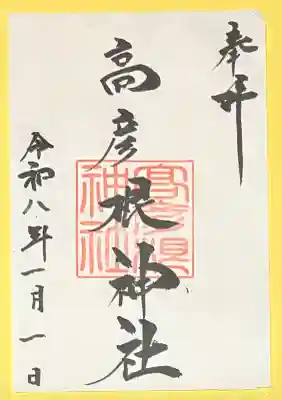 奉拝
高彦根神社
高彦根神社
令和八年一月一日